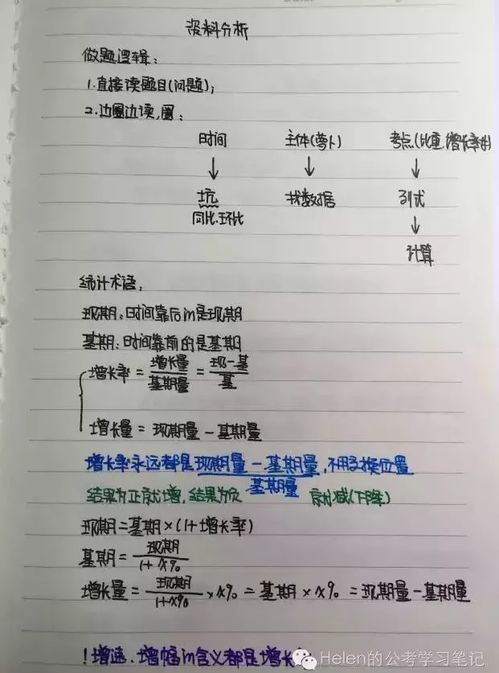 资料分析
做题逻辑:
1.直接读题目(问题);
2.边圈边读,圈:
时间 主体(萝卜) 考点(比重/增长率等)
↓ ↓ ↓
坑 找数据 列式
同比.环比 ↓
计算
统计术语,
现期:时间靠后的是现期
基期:时间靠前的是基期
增长率=增长量/基期量=现-基/基
增长量=现期量-基期量
增长率永远都是现期量-基期量/基期量,不用交换位置
结果为正就增,结果为负就减(下降)
现期=基期×(1+增长率)
基期=现期/1+x%
增长量=现期/1+x%×x%=基期×x%=现期量-基期量
!增速.增幅的含义都是增长
Helen的公考学习笔记